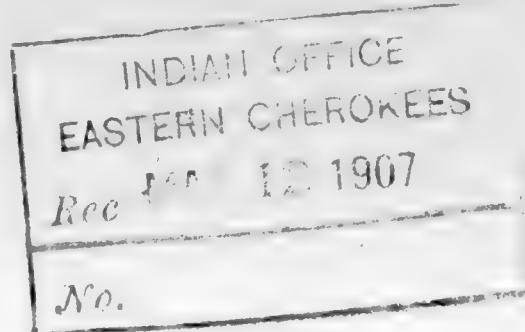 INDIAN OFFICE
EASTERN CHEROKEES
Rec 12 1907
No.